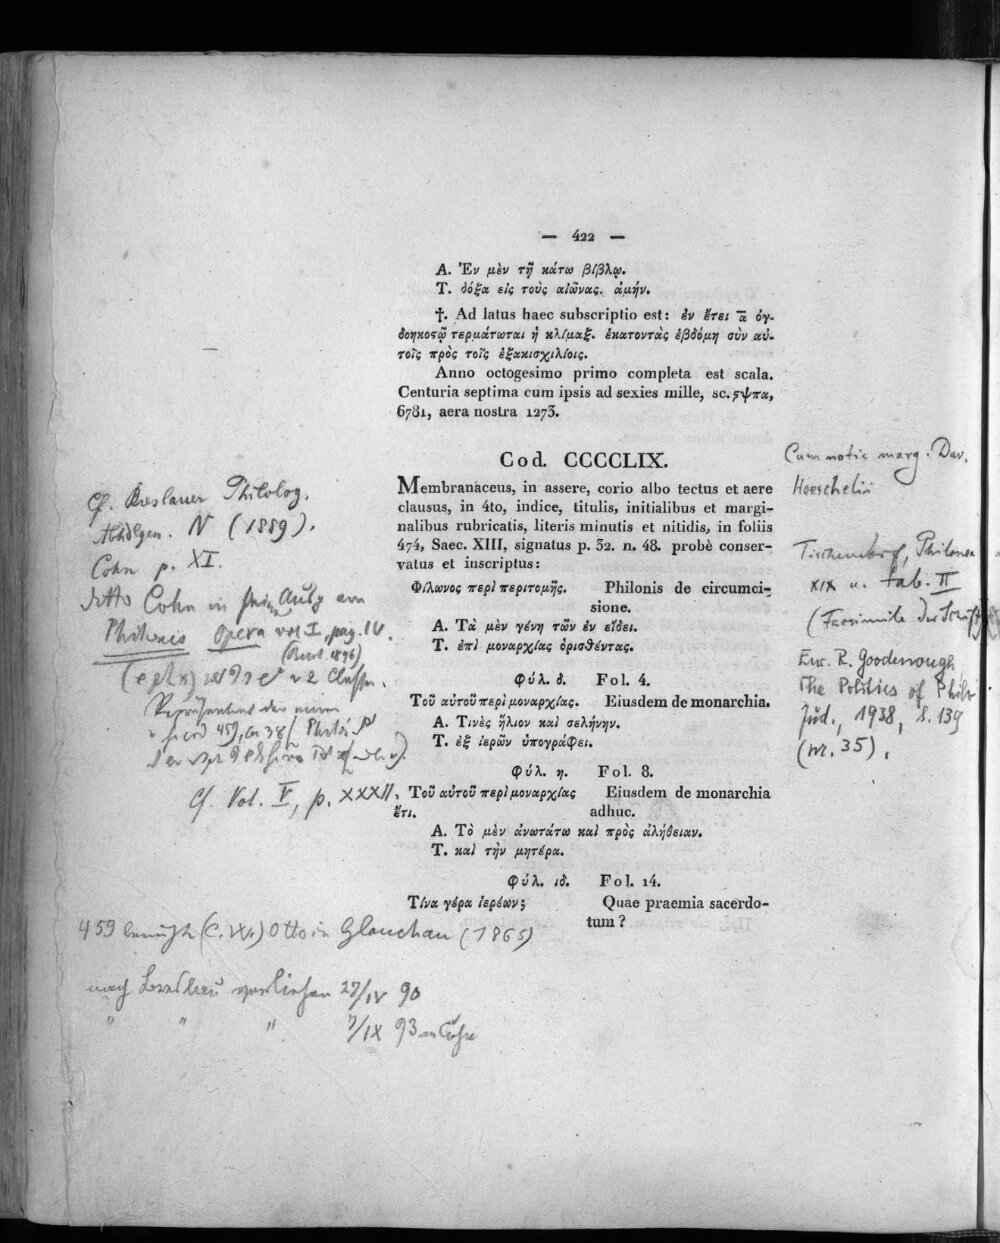 — 422 —
A. Ἐν μὲν τῇ κάτω βίβλῳ.
T. δόξα εἰς τοὺς αἰῶνας. ἀμήν.
†. Ad latus haec subscriptio est: ἐν ἔτει ᾱ ὀγ-
δοηκοστῷ τερμάτωται ἡ κλίμαξ. ἑκατοντὰς ἑβδόμη σὺν αὐ-
τοῖς πρὸς τοῖς ἑξακισχιλίοις.
Anno octogesimo primo completa est scala.
Centuria septima cum ipsis ad sexies mille, sc. ϛψπα,
6781, aera nostra 1273.
Cod. CCCCLIX.
Membranaceus, in assere, corio albo tectus et aere
clausus, in 4to, indice, titulis, initialibus et margi-
nalibus rubricatis, literis minutis et nitidis, in foliis
474, Saec. XIII, signatus p. 32. n. 48. probè conser-
vatus et inscriptus:
Φίλωνος περὶ περιτομῆς. Philonis de circumci-
sione.
A. Τὰ μὲν γένη τῶν ἐν εἴδει.
T. ἐπὶ μοναρχίας ὁρισθέντας.
Φύλ. δ. Fol. 4.
Τοῦ αὐτοῦ περὶ μοναρχίας. Eiusdem de monarchia.
A. Τινὲς ἥλιον καὶ σελήνην.
T. ἐξ ἱερῶν ὑπογράφει.
Φύλ. η. Fol. 8.
Τοῦ αὐτοῦ περὶ μοναρχίας Eiusdem de monarchia
ἔτι. adhuc.
A. Τὸ μὲν ἀνωτάτω καὶ πρὸς ἀλήθειαν.
T. καὶ τὴν μητέρα.
Φύλ. ιδ. Fol. 14.
Τίνα γέρα ἱερέων; Quae praemia sacerdo-
tum?
Cf. Breslauer Philolog.
Abhdlgen. IV (1889).
Cohn p. XI.
ditto Cohn in Ausg von
Philonis Opera vol. I, pag. IV.
(Berl. 1896)
Cf. Vol. V, p. XXXII.
459 Otto in Glauchau (1865)
nach Breslau verliehen 27/IV 90
" " " 7/IX 93
Cum notis marg. Dav.
Hoeschelii
Tischendorf, Philonea
XIX u. tab. II
(Facsimile der Schrift)
Erw. R. Goodenough
The Politics of Philo
Jud., 1938, S. 139
(nr. 35).